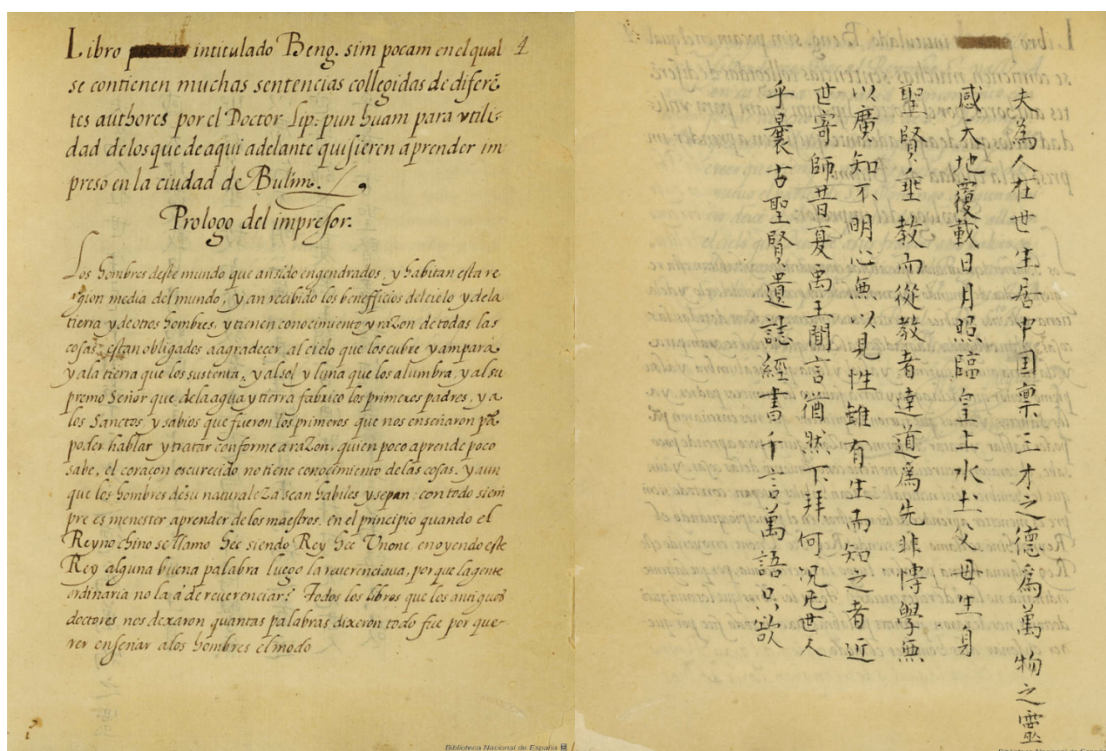 Libro intitulado Beng. sim pocam en el qual 1
se contienen muchas sentencias collegidas de diferẽ
tes authores por el Doctor Lip. pun huam para vtili-
dad de los que de aqui adelante quisieren aprender im
preso en la ciudad de Bulim.
Prologo del impresor.
Los hombres deste mundo que an sido engendrados, y habitan esta re
gion media del mundo, y an recibido los benefficios del cielo y dela
tierra y de otros hombres, y tienen conocimiento y raZon de todas las
cosas, estan obligados a agradecer al cielo que los cubre y ampara
y ala tierra que los sustenta, y al sol y luna que los alumbra, y al su
premo Señor que dela agua y tierra fabrico los primeros padres, y a
los Sanctos, y sabios que fueron los primeros que nos enseñaron pa
poder hablar y tratar conforme a raZon, quien poco aprende poco
sabe, el coraçon escurecido no tiene conocimiento delas cosas, y aun
que los hombres de su naturaleZa sean habiles y sepan: con todo siem
pre es menester aprender delos maestros, en el principio quando el
Reyno chino se llamo Hee siendo Rey Hee Vnone, en oyendo este
Rey alguna buena palabra luego la reverenciava, porque la gente
ordinaria no la a de reverenciar? Todos los libros que los antiguos
doctores nos dexaron quantas palabras dixeron todo fue por que-
rer enseñar alos hombres el modo
夫為人在世生居中国禀三才之德為萬物之靈
感天地覆載日月照臨皇上水土父母生身
聖賢垂教而從教者達道為先非博學無
以廣知不明心無以見性雖有生而知之者近
世寄師昔夏禹王聞言猶然下拜何況凡世人
乎曩古聖賢遺誌經書千言萬語只欲
Biblioteca Nacional de España